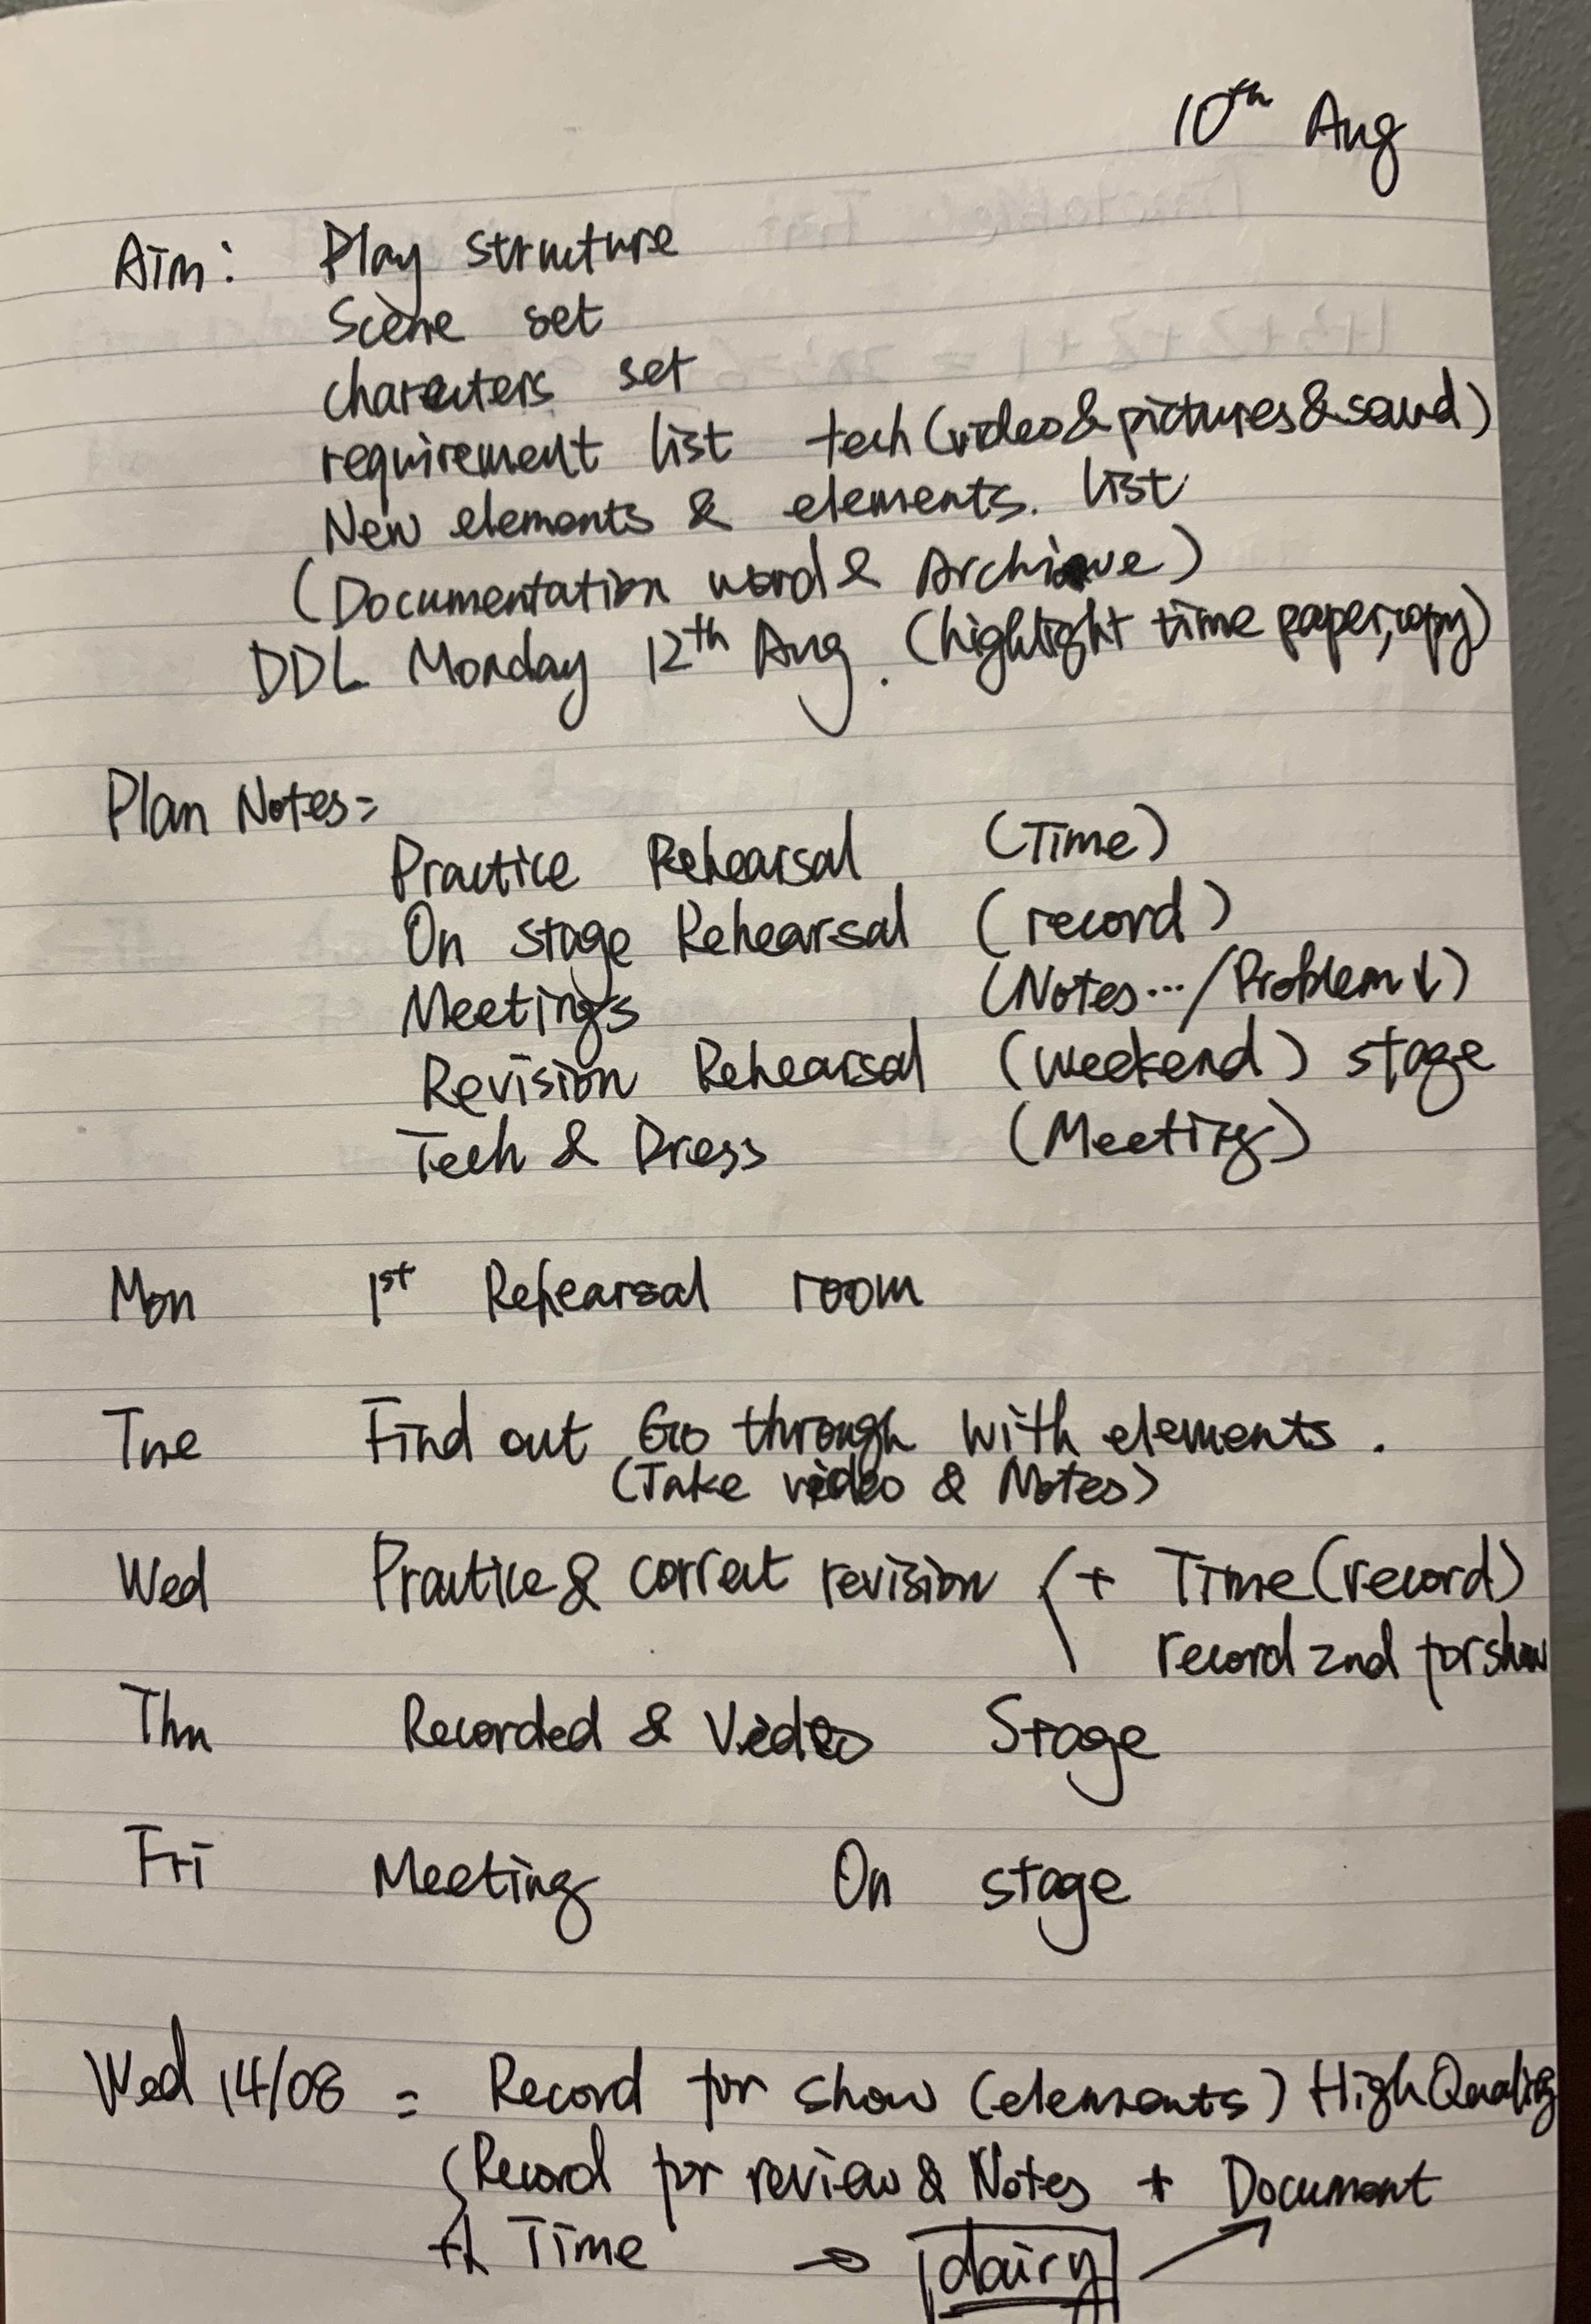 10th Aug
Aim: Play structure
Scene set
characters set
requirement list tech (video & pictures & sound)
New elements & elements. list
(Documentation word & Archive)
DDL Monday 12th Aug. (highlight time paper, copy)
Plan Notes:
Practice Rehearsal (Time)
On stage Rehearsal (record)
Meetings (Notes.../Problem↓)
Revision Rehearsal (weekend) stage
Tech & Dress (Meeting)
Mon 1st Rehearsal room
Tue Find out Go through with elements.
(Take video & Notes)
Wed Practice & correct revision + Time (record)
record 2nd for show
Thu Recorded & Video Stage
Fri Meeting On stage
Wed 14/08 = Record for show (elements) High Quality
Record for review & Notes + Document
+ Time → dairy